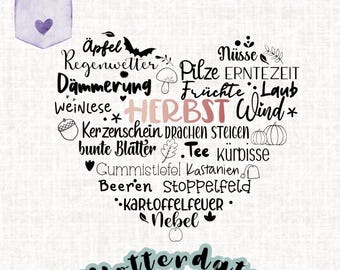 Äpfel Nüsse
Regenwetter Pilze ERNTEZEIT
Dämmerung Früchte Laub
Weinlese HERBST Wind
Kerzenschein DRACHEN STEIGEN
bunte Blätter Tee KÜRBISSE
Gummistiefel Kastanien
Beeren Stoppelfeld
KARTOFFELFEUER
Nebel
Plotterdatei